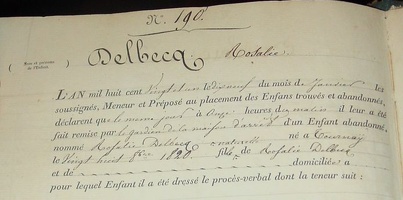 N.º 190.
Delbecq, Rosalie.
( Nom et prénoms de l'Enfant. )
L'AN mil huit cent Vingt et un le dix neuf du mois de Janvier les
soussignés, Meneur et Préposé au placement des Enfans trouvés et abandonnés,
déclarent que le même jour à onze heures du matin il leur a été
fait remise par le gardien de la maison d'arrêt d'un Enfant abandonné,
nommé Rosalie Delbecq né a Tournay
le Vingt huit 8bre 1820. fille naturelle de Rosalie Delbecq
et de domiciliés a
pour lequel Enfant il a été dressé le procès-verbal dont la teneur suit :